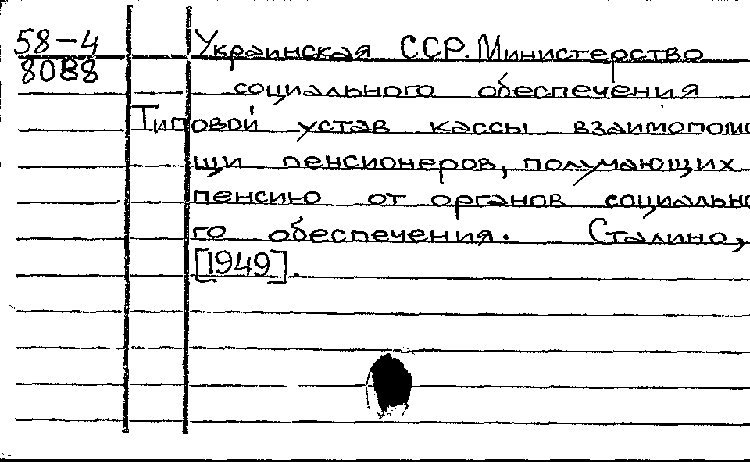 58-4
8088
Украинская ССР. Министерство
социального обеспечения
Типовой устав кассы взаимопомо
щи пенсионеров, получающих
пенсию от органов социально
го обеспечения. Сталино,
[1949].